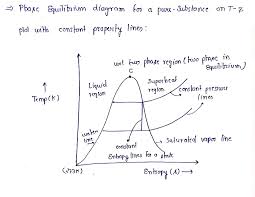 ⇒ Phase Equilibrium diagram for a pure-substance on T-s
plot with constant property lines:
wet two phase region (two phase in
Equilibrium)
C
Liquid
region
Superheat
region
constant pressure
lines
Temp(K)
water
line
constant
Saturated vapor line
Entropy lines for a state
Entropy (s)